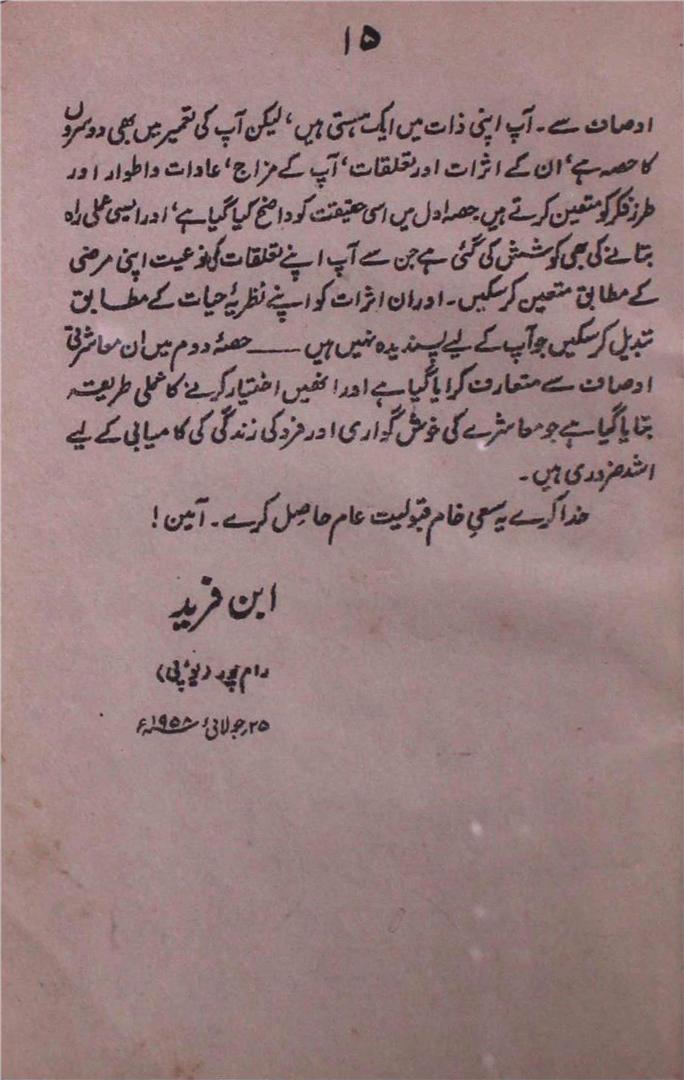 ۱۵
اوصاف سے۔ آپ اپنی ذات میں ایک ہستی ہیں، لیکن آپ کی تعمیر میں بھی دوسروں
کا حصہ ہے، ان کے اثرات اور تعلقات، آپ کے مزاج، عادات و اطوار اور
طرز فکر کو متعین کرتے ہیں۔ حصہ اول میں اسی حقیقت کو واضح کیا گیا ہے، اور ایسی عملی راہ
بتانے کی بھی کوشش کی گئی ہے جن سے آپ اپنے تعلقات کی نوعیت اپنی مرضی
کے مطابق متعین کر سکیں۔ اور ان اثرات کو اپنے نظریۂ حیات کے مطابق
تبدیل کر سکیں جو آپ کے لیے پسندیدہ نہیں ہیں ــــــ حصۂ دوم میں ان معاشرتی
اوصاف سے متعارف کرایا گیا ہے اور انھیں اختیار کرنے کا عملی طریقہ
بتایا گیا ہے جو معاشرے کی خوش گواری اور فرد کی زندگی کی کامیابی کے لیے
اشد ضروری ہیں۔
خدا کرے یہ سعیِ خام قبولیت عام حاصل کرے۔ آمین!
ابن فرید
رام پور (یو پی)
۲۵؍ جولائی ۱۹۵۸ء